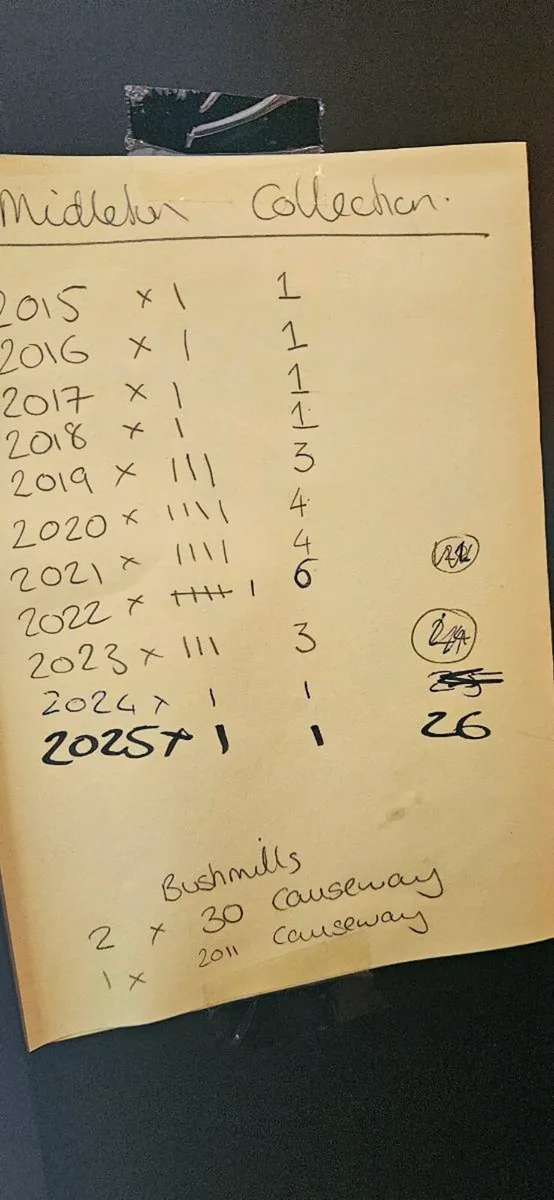 Midleton Collection.
2015 x | 1
2016 x | 1
2017 x | 1
2018 x | 1
2019 x ||| 3
2020 x |||| 4
2021 x |||| 4
2022 x 卌 | 6
2023 x ||| 3
2024 x | 1
2025 x | 1 26
Bushmills
2 x 30 Causeway
1 x 2011 Causeway